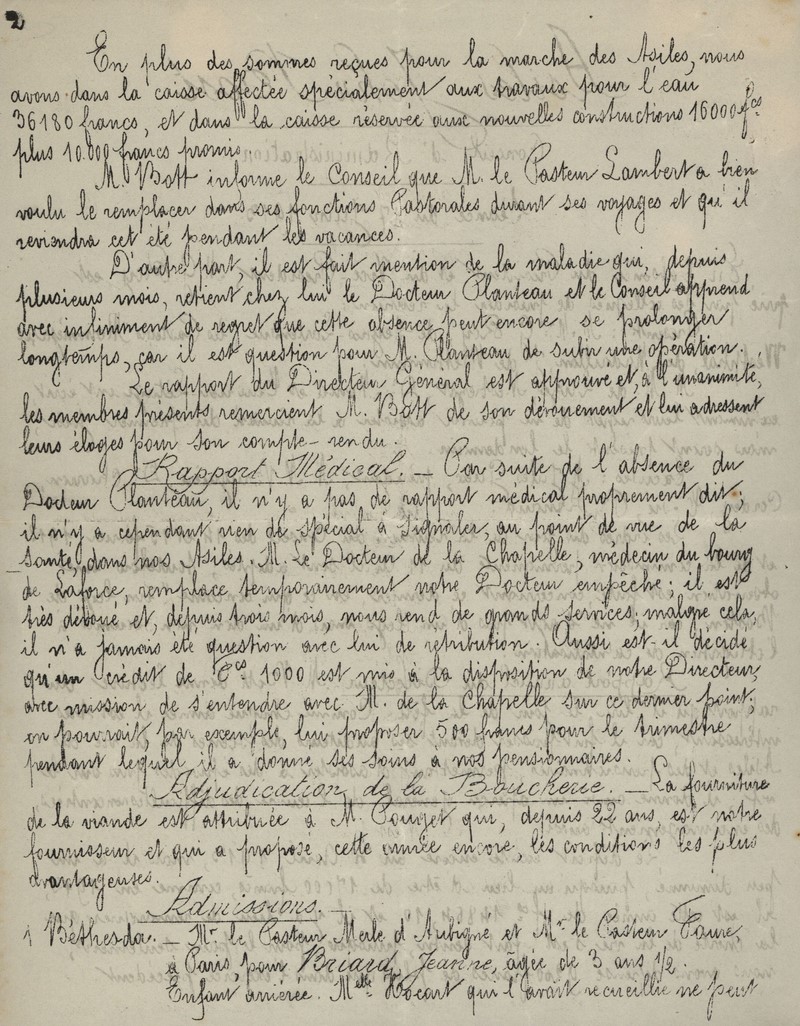 2
En plus des sommes reçues pour la marche des Asiles, nous
avons dans la caisse affectée spécialement aux travaux pour l'eau
36180 francs, et dans la caisse réservée aux nouvelles constructions 16000 fcs
plus 10.000 francs promis.
M. Bott informe le Conseil que M. le Pasteur Lambert a bien
voulu le remplacer dans ses fonctions Pastorales durant ses voyages et qu'il
reviendra cet été pendant les vacances.
D'autre part, il est fait mention de la maladie qui, depuis
plusieurs mois, retient chez lui le Docteur Planteau et le Conseil apprend
avec infiniment de regret que cette absence peut encore se prolonger
longtemps, car il est question pour M. Planteau de subir une opération.
Le rapport du Directeur Général est approuvé et, à l'unanimité,
les membres présents remercient M. Bott de son dévouement et lui adressent
leurs éloges pour son compte-rendu.
Rapport Médical. — Par suite de l'absence du
Docteur Planteau, il n'y a pas de rapport médical proprement dit;
il n'y a cependant rien de spécial à signaler, au point de vue de la
santé, dans nos Asiles. M. Le Docteur de la Chapelle, médecin du bourg
de Laforce, remplace temporairement notre Docteur empêché; il est
très dévoué et, depuis trois mois, nous rend de grands services; malgré cela,
il n'a jamais été question avec lui de rétribution. Aussi est-il décidé
qu'un crédit de Fcs 1000 est mis à la disposition de notre Directeur,
avec mission de s'entendre avec M. de la Chapelle sur ce dernier point;
on pourrait, par exemple, lui proposer 500 francs pour le trimestre
pendant lequel il a donné ses soins à nos pensionnaires.
Adjudication de la Boucherie. — La fourniture
de la viande est attribuée à M. Pouget qui, depuis 22 ans, est notre
fournisseur et qui a proposé, cette année encore, les conditions les plus
avantageuses.
Admissions. —
1 Béthesda. — Mr. le Pasteur Merle d'Aubigné et Mr. le Pasteur Faure,
à Paris, pour Briard, Jeanne, âgée de 3 ans 1/2.
Enfant arriérée. Melle Rocart qui l'avait recueillie ne peut